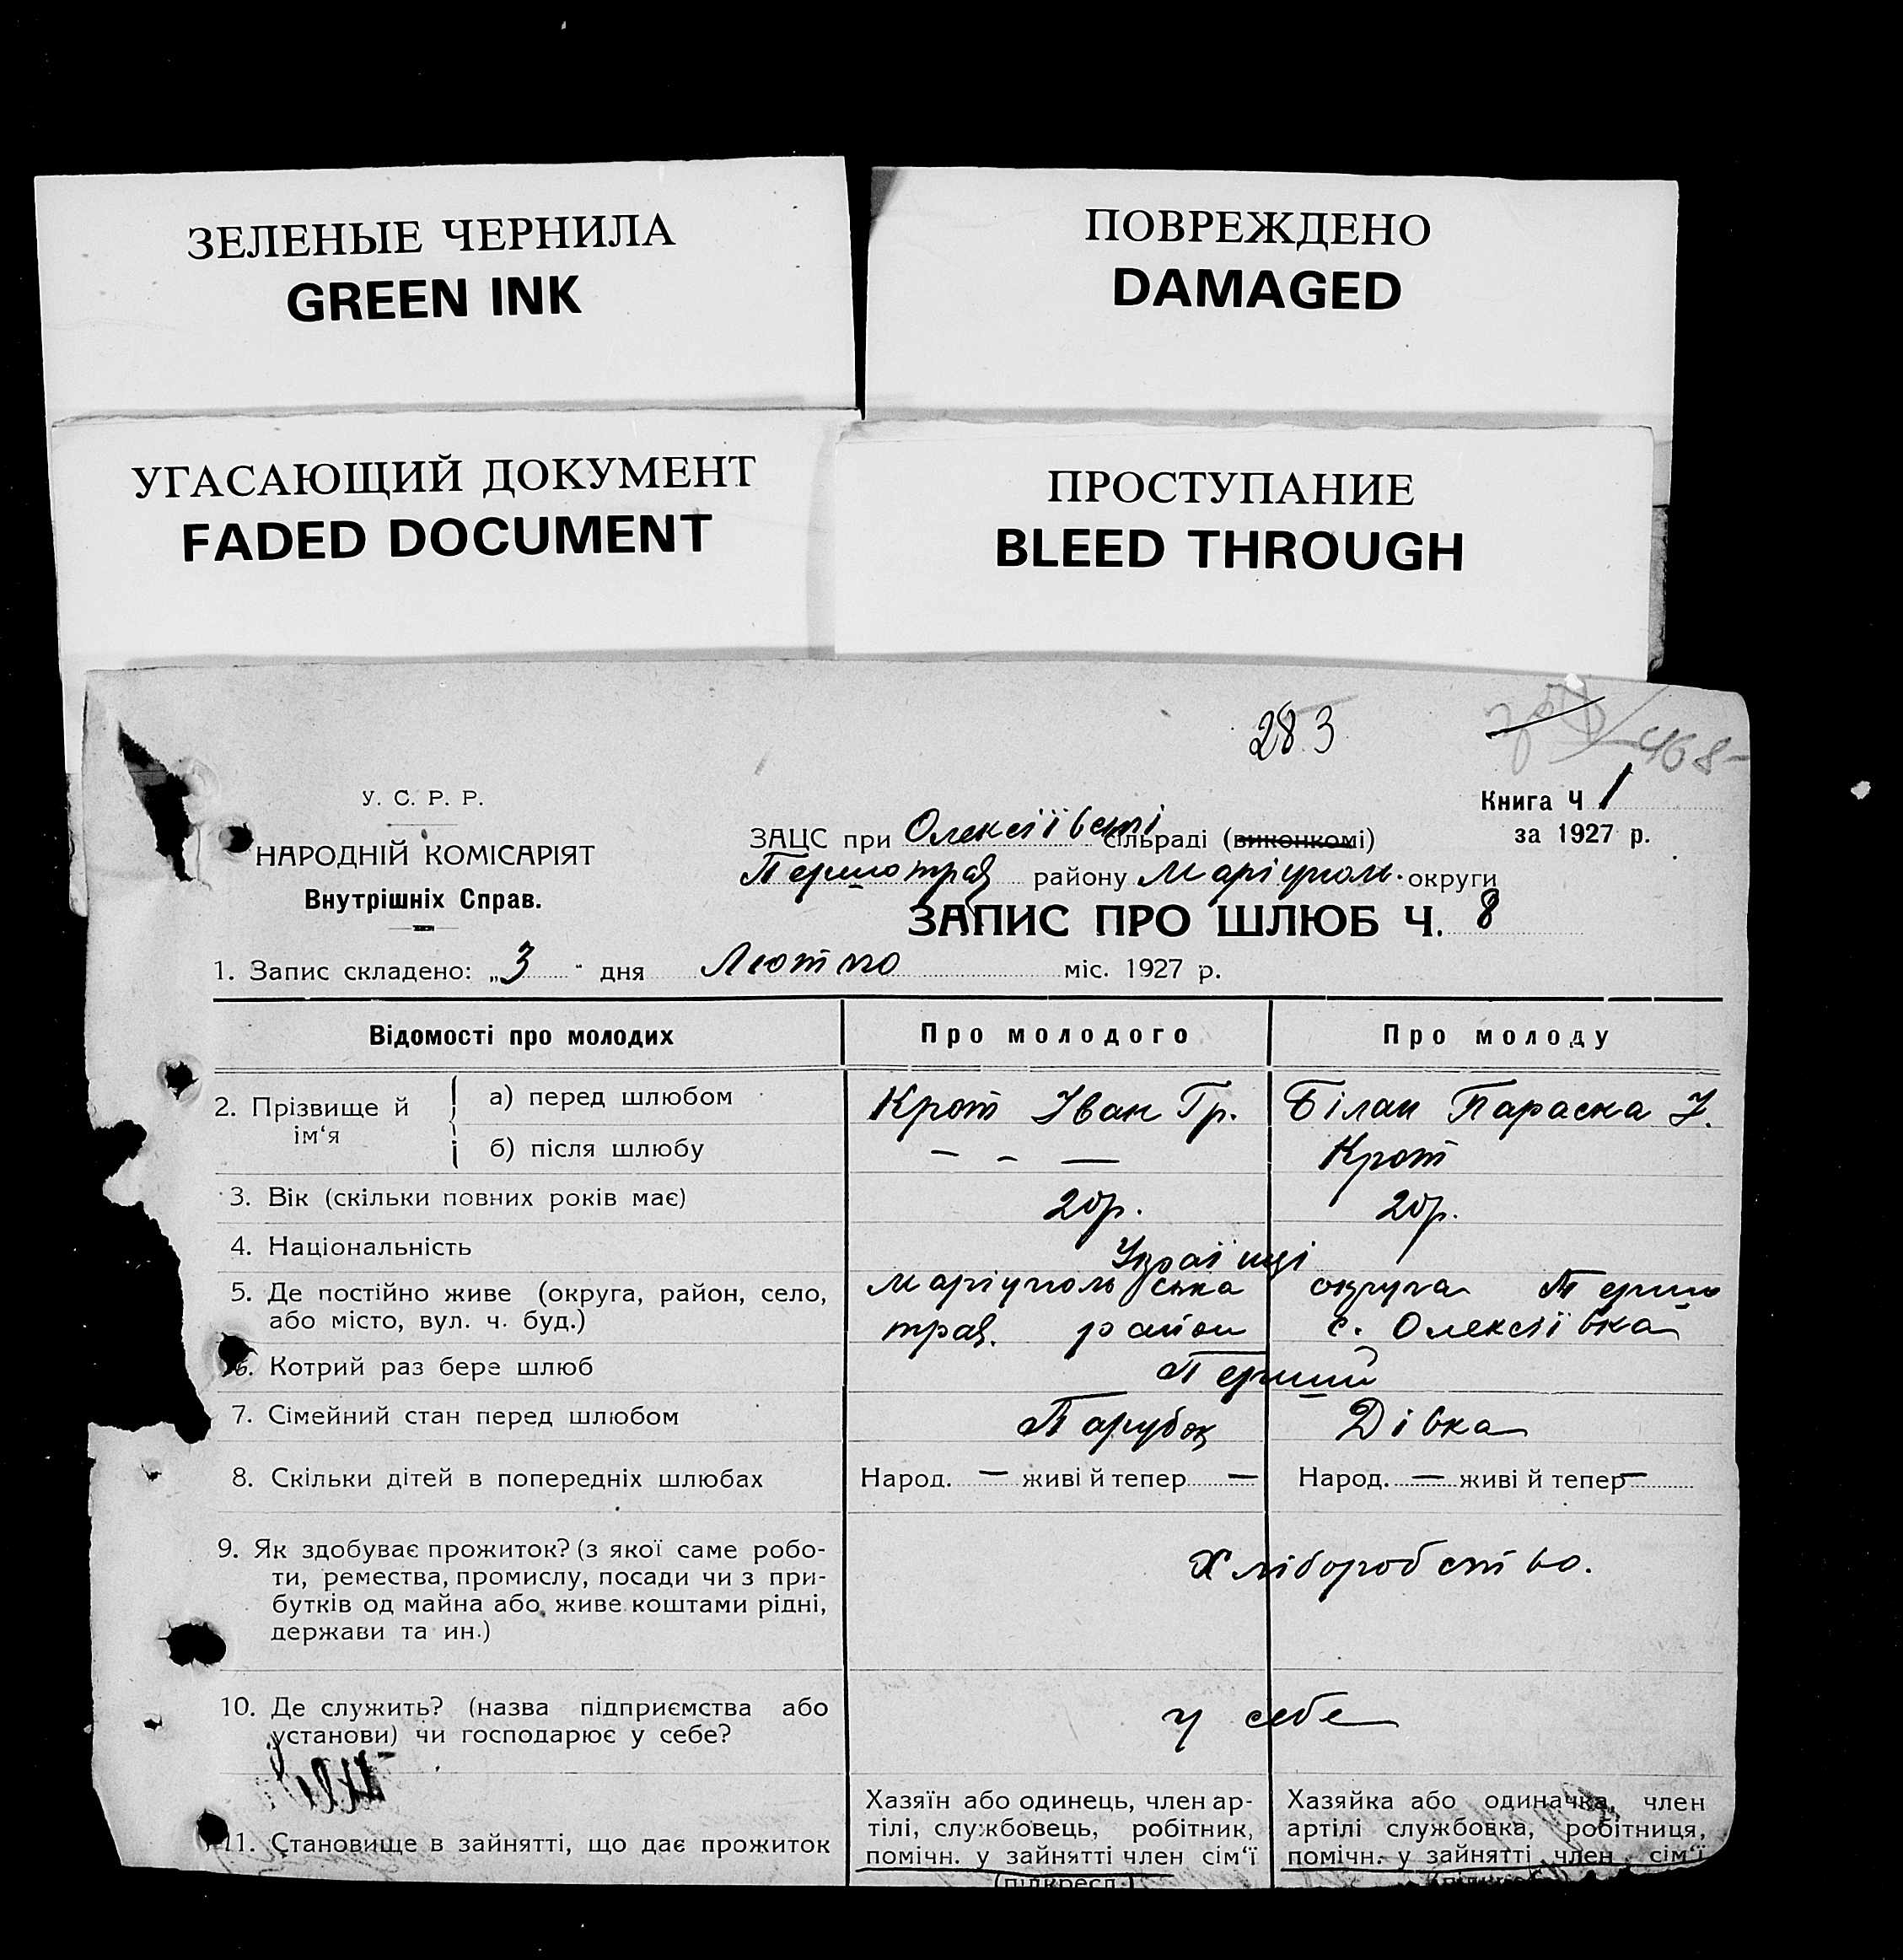 ЗЕЛЕНЫЕ ЧЕРНИЛА
GREEN INK
ПОВРЕЖДЕНО
DAMAGED
УГАСАЮЩИЙ ДОКУМЕНТ
FADED DOCUMENT
ПРОСТУПАНИЕ
BLEED THROUGH
283
468-
У. С. Р. Р.
НАРОДНІЙ КОМІСАРІЯТ
Внутрішніх Справ.
Книга Ч 1
за 1927 р.
ЗАЦС при Олексіївскі сільраді (виконкомі)
Першотрав районy Маріуполь. округи
ЗАПИС ПРО ШЛЮБ Ч. 8
1. Запис складено: „3" дня Лютого міс. 1927 р.
Відомості про молодих Про молодого Про молоду
2. Прізвище й ім‘я а) перед шлюбом Крот Іван Гр. Білан Параска І.
б) після шлюбу - - — Крот
3. Вік (скільки повних років має) 20р. 20р.
4. Національність Українці
5. Де постійно живе (округа, район, село, Маріупольська округа Першо
або місто, вул. ч. буд.) трав. район с. Олексіївка
6. Котрий раз бере шлюб Перший
7. Сімейний стан перед шлюбом Парубок Дівка
8. Скільки дітей в попередніх шлюбах Народ. — живі й тепер — Народ. — живі й тепер —
9. Як здобуває прожиток? (з якої саме робо-
ти, ремества, промислу, посади чи з при- Хліборобство.
бутків од майна або живе коштами рідні,
держави та ин.)
10. Де служить? (назва підприємства або у себе
установи) чи господарює у себе?
11. Становище в зайнятті, що дає прожиток
Хазяїн або одинець, член ар-
тілі, службовець, робітник,
помічн. у зайнятті член сім‘ї
(підкресл.)
Хазяйка або одиначка, член
артілі службовка, робітниця,
помічн. у зайнятті член сім‘ї